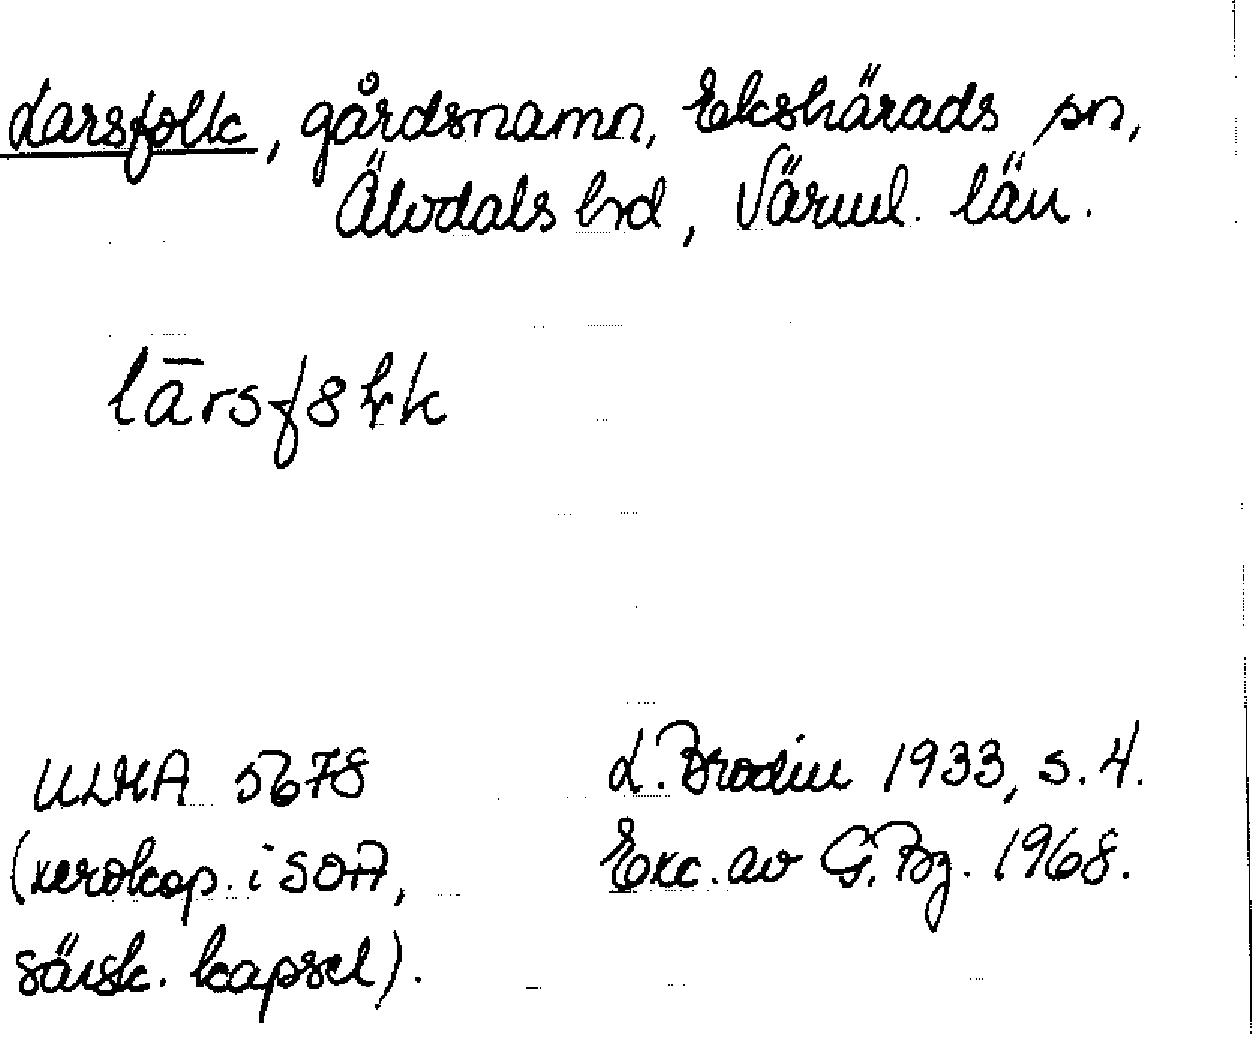 Larsfolk, gårdsnamn, Ekshärads sn,
Älvdals hd, Värml. län.
lārsf8lrk
ULMA 5678
(xerokop. i SOA,
särsk. kapsel).
L. Brodin 1933, s. 4.
Exc. av G. Bg. 1968.